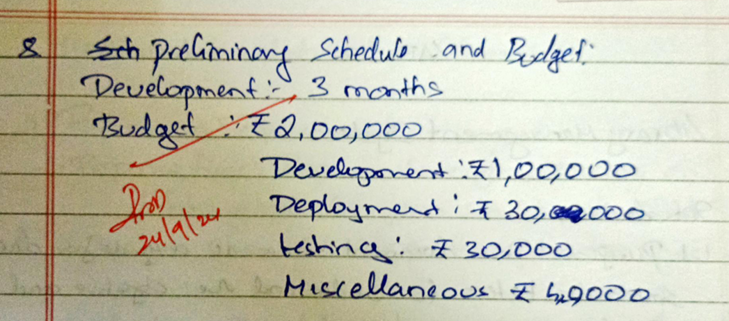 8 Preliminary Schedule and Budget:
Development :- 3 months
Budget : ₹2,00,000
Development : ₹1,00,000
Deployment : ₹ 30,000
testing : ₹ 30,000
Miscellaneous ₹
24/9/24